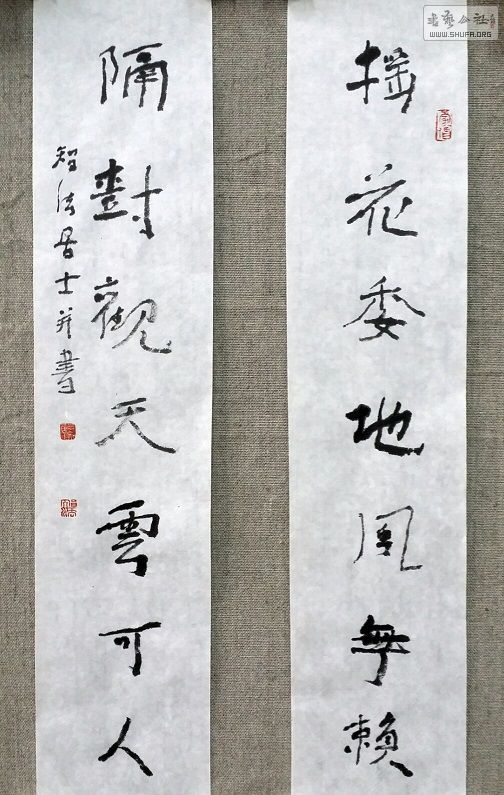 花委地風無賴
隔對觀天雲可人
智法居士并書
WWW.SHUFA.ORG